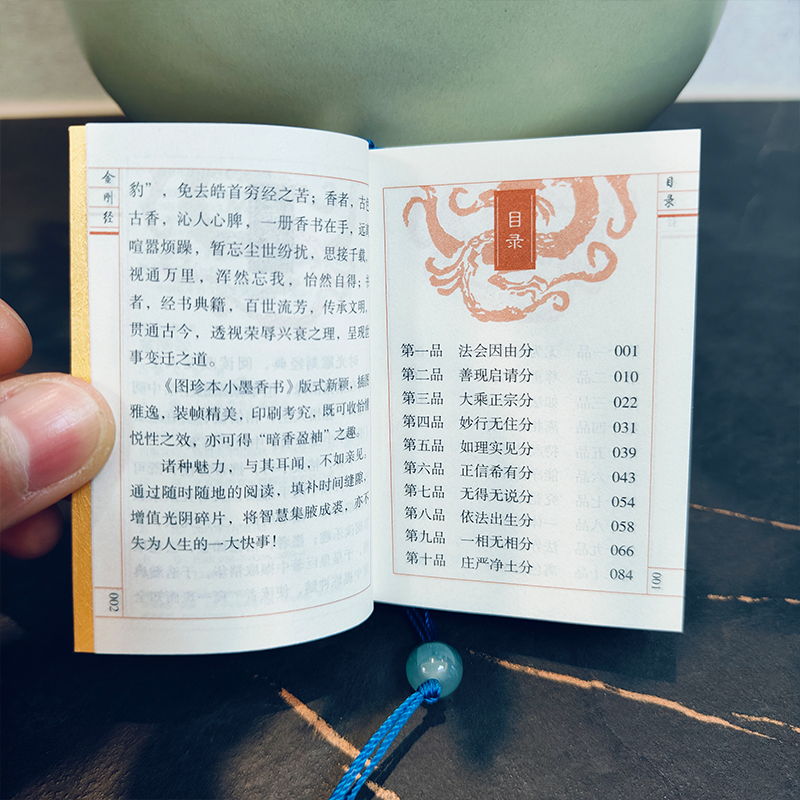 金刚经
豹”，免去皓首穷经之苦；香者，古色
古香，沁人心脾，一册香书在手，远离
喧嚣烦躁，暂忘尘世纷扰，思接千载，
视通万里，浑然忘我，怡然自得；书
者，经书典籍，百世流芳，传承文明，
贯通古今，透视荣辱兴衰之理，呈现世
事变迁之道。
《图珍本小墨香书》版式新颖，插图
雅逸，装帧精美，印刷考究，既可收怡情
悦性之效，亦可得“暗香盈袖”之趣。
诸种魅力，与其耳闻，不如亲见。
通过随时随地的阅读，填补时间缝隙，
增值光阴碎片，将智慧集腋成裘，亦不
失为人生的一大快事！
002
目录
目录
第一品 法会因由分 001
第二品 善现启请分 010
第三品 大乘正宗分 022
第四品 妙行无住分 031
第五品 如理实见分 039
第六品 正信希有分 043
第七品 无得无说分 054
第八品 依法出生分 058
第九品 一相无相分 066
第十品 庄严净土分 084
001